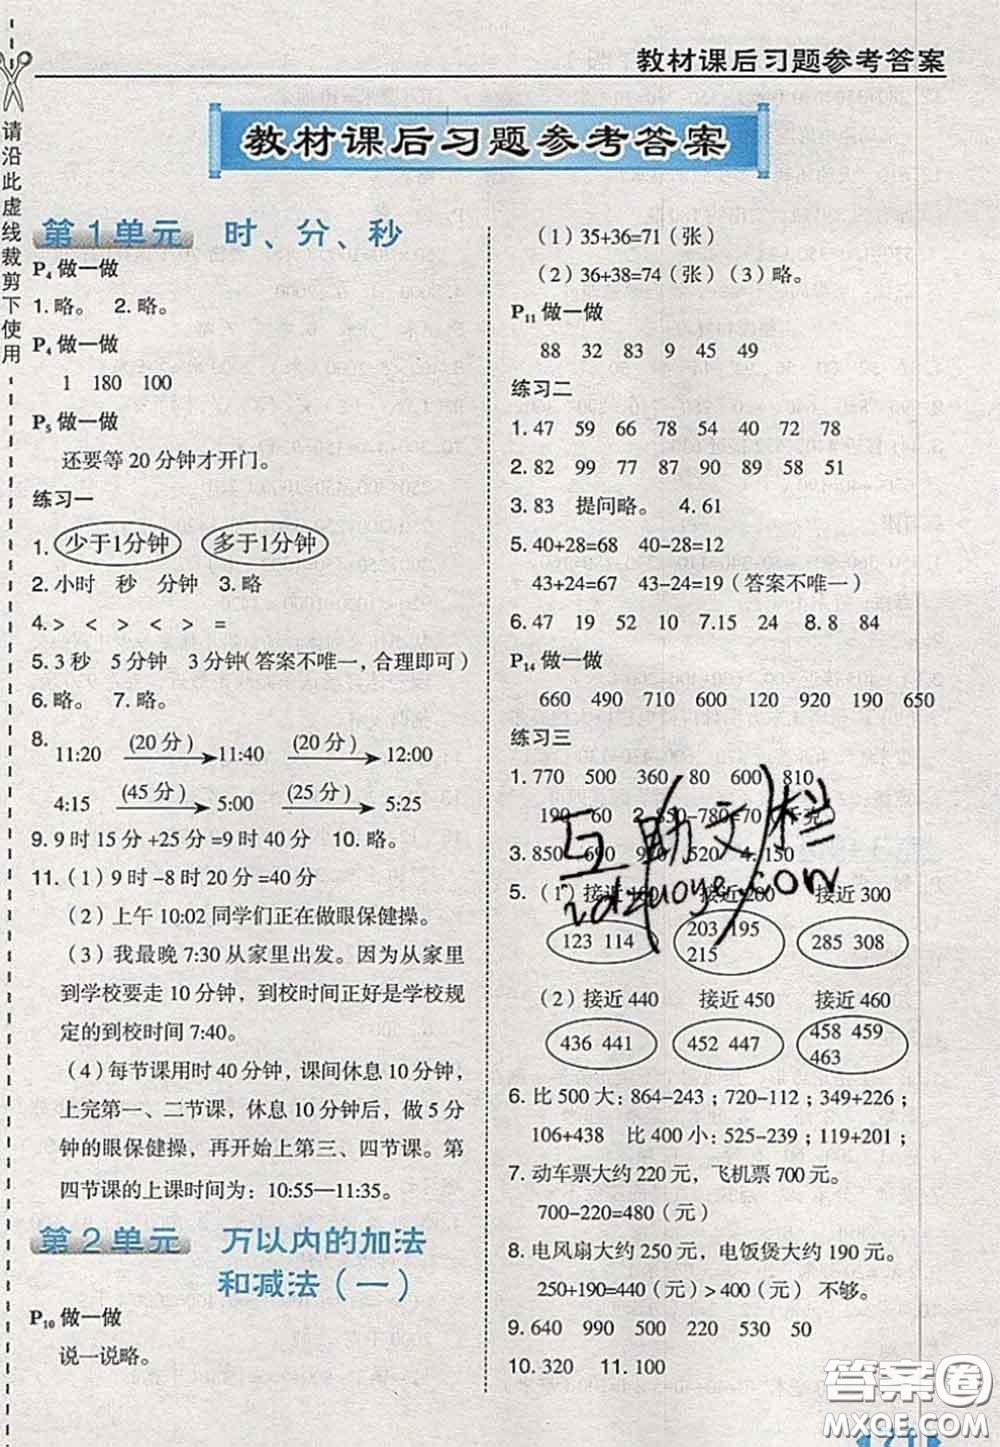 教材课后习题参考答案
教材课后习题参考答案
请沿此虚线裁剪下使用
第1单元 时、分、秒
P4 做一做
1. 略。 2. 略。
P4 做一做
1 180 100
P5 做一做
还要等 20 分钟才开门。
练习一
1. 少于1分钟 多于1分钟
2. 小时 秒 分钟 3. 略
4. > < > < > =
5. 3 秒 5 分钟 3 分钟(答案不唯一,合理即可)
6. 略。 7. 略。
8. 11:20 (20 分) 11:40 (20 分) 12:00
4:15 (45 分) 5:00 (25 分) 5:25
9. 9 时 15 分 +25 分 =9 时 40 分 10. 略。
11. (1) 9 时 -8 时 20 分 =40 分
(2)上午 10:02 同学们正在做眼保健操。
(3)我最晚 7:30 从家里出发。因为从家里
到学校要走 10 分钟,到校时间正好是学校规
定的到校时间 7:40。
(4)每节课用时 40 分钟,课间休息 10 分钟,
上完第一、二节课,休息 10 分钟后,做 5 分
钟的眼保健操,再开始上第三、四节课。第
四节课的上课时间为:10:55—11:35。
第2单元 万以内的加法
和减法(一)
P10 做一做
说一说略。
(1) 35+36=71(张)
(2) 36+38=74(张)(3)略。
P11 做一做
88 32 83 9 45 49
练习二
1. 47 59 66 78 54 90 72 78
2. 82 99 77 87 90 89 58 51
3. 83 提问略。 4. 61
5. 40+28=68 40-28=12
43+24=67 43-24=19(答案不唯一)
6. 47 19 52 10 7. 15 24 8. 8 84
P14 做一做
660 490 710 600 120 920 190 650
练习三
1. 770 500 360 80 600 810
190 60 2. 850-780=70(千克)
3. 850 690 920 520 4. 150
5. (1)接近 100 接近 200 接近 300
123 114 203 195 215 285 308
(2)接近 440 接近 450 接近 460
436 441 452 447 458 459 463
6. 比 500 大:864-243;720-112;349+226;
106+438 比 400 小:525-239;119+201;
7. 动车票大约 220 元,飞机票 700 元。
700-220=480(元)
8. 电风扇大约 250 元,电饭煲大约 190 元。
250+190=440(元)>400(元) 不够。
9. 640 990 500 900 530 50
10. 320 11. 100
互助文档
答案圈
MXQE.COM
171